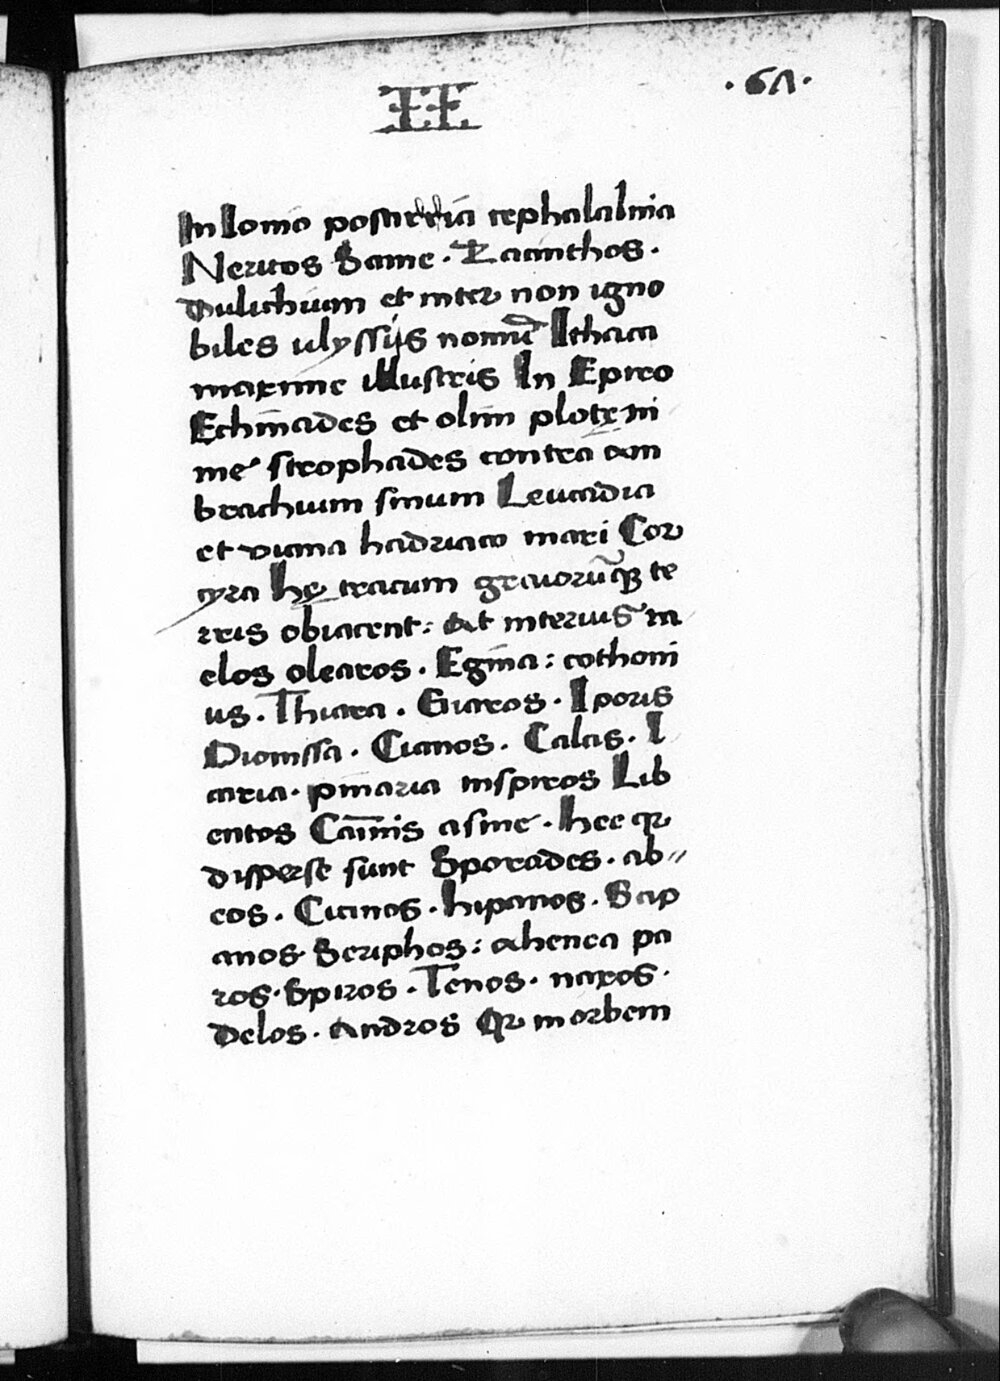 II
· 61 ·
In Ionio postirria cephalalnia
Neritos Same · Zacinthos ·
Dulichium et inter non igno
biles ulyssijs nomīe Ithaca
maxime illustris In Epiro
Echinades et olim plote ni
me strophades contra am
brachium sinum Leucadia
et vicina hadriaco mari Cor
cyra hę tracum graiorūqꝫ te
rris obiacent : At interius m
elos olearos · Egina : cothoni
us · Thiara · Giaros · Iporis
Dionissa · Cianos · Calas · I
caria · pinaria nispiros Lib
entos Camīs asine · hec qr
disperse sunt Sporades · ab
cos · Cicinos · hipanos · Scip
anos · Seriphos : ahenea pa
ros · Spiros · Tenos · naxos ·
Delos · Andros Qr in orbem